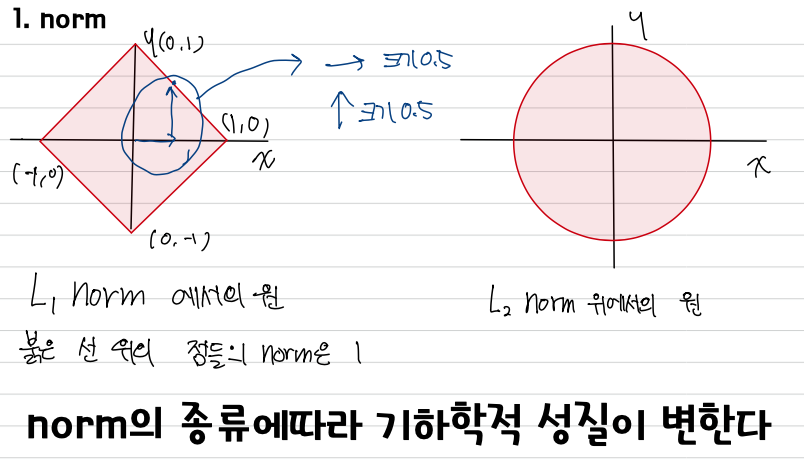 1. norm
y(0,1)
→ 크기0.5
↑크기0.5
(1,0)
x
(-1,0)
(0,-1)
y
x
L₁ norm 에서의 원
붉은 선 위의 점들의 norm은 1
L₂ norm 위에서의 원
norm의 종류에따라 기하학적 성질이 변한다